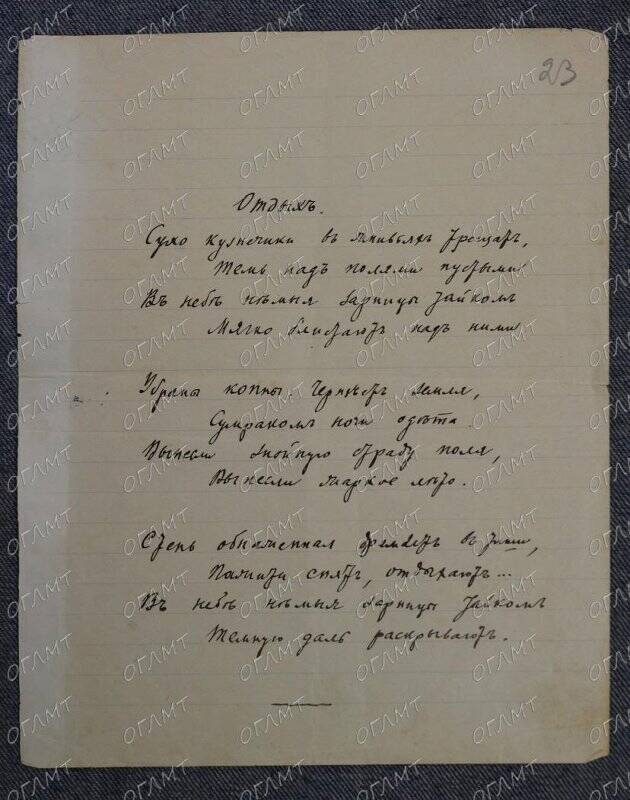 23
Отдыхъ.
Сухо кузнечики въ жнивьяхъ трещатъ,
Темь надъ полями пустыми
Въ небѣ нѣмыя зарницы тайкомъ
Мягко блистаютъ надъ ними
Убраны копны. Чернѣетъ земля,
Сумракомъ ночи одѣта.
Вынесли знойную страду поля,
Вынесли жаркое лѣто.
Степь обнаженная дремлетъ въ тиши,
Пажити спятъ, отдыхаютъ...
Въ небѣ нѣмыя зарницы тайкомъ
Темную даль раскрываютъ.